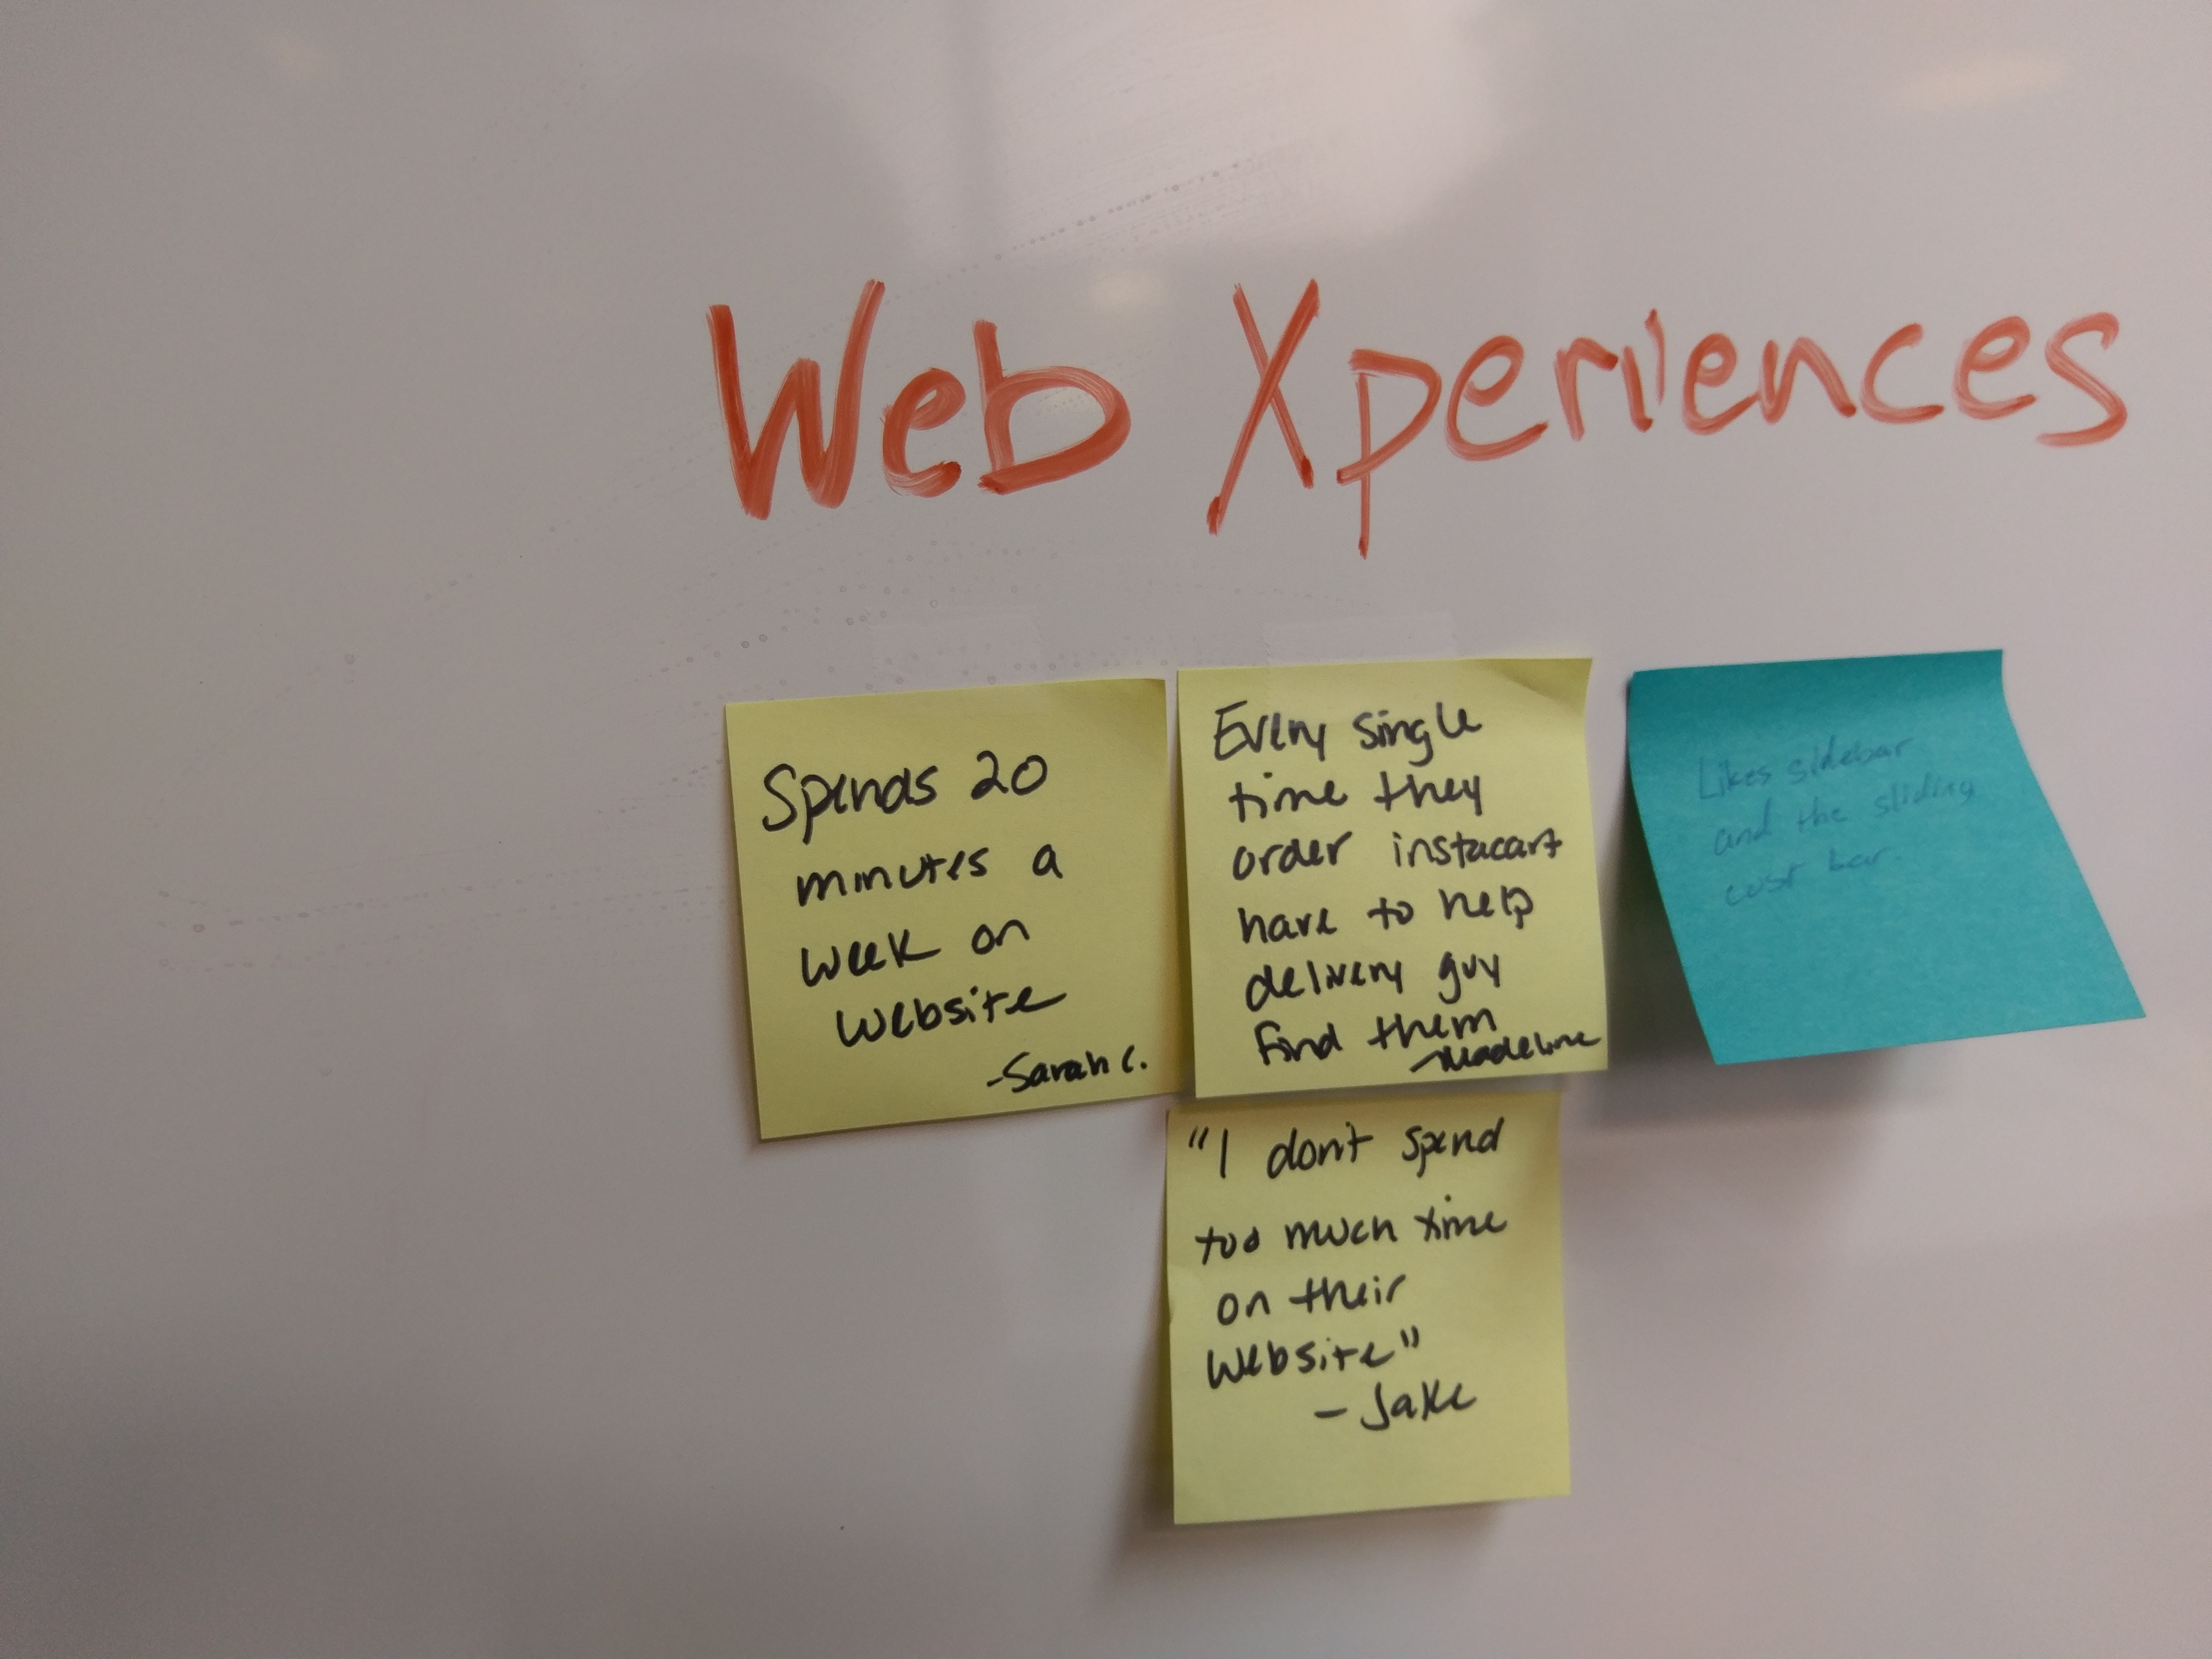 Web Xperiences
Spends 20
minutes a
week on
website
-Sarah C.
Every single
time they
order instacart
have to help
delivery guy
find them
-Madeline
Likes sidebar
and the sliding
cost bar.
"I don't spend
too much time
on their
website"
- Jake